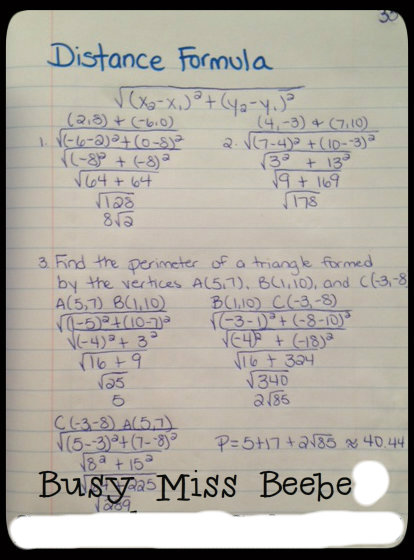 30
Distance Formula
√(x₂-x₁)²+(y₂-y₁)²
(2,8) + (-6,0)
1. √(-6-2)²+(0-8)²
√(-8)² + (-8)²
√64 + 64
√128
8√2
(4,-3) + (7,10)
2. √(7-4)²+(10--3)²
√3² + 13²
√9 + 169
√178
3. Find the perimeter of a triangle formed
by the vertices A(5,7), B(1,10), and C(-3,-8
A(5,7) B(1,10)
√(1-5)²+(10-7)²
√(-4)² + 3²
√16 + 9
√25
5
B(1,10) C(-3,-8)
√(-3-1)²+(-8-10)²
√(-4)² + (-18)²
√16 + 324
√340
2√85
C(-3,-8) A(5,7)
√(5--3)²+(7--8)²
√8² + 15²
225
√289
P=5+17+2√85 ≈ 40.44
Busy Miss Beebe